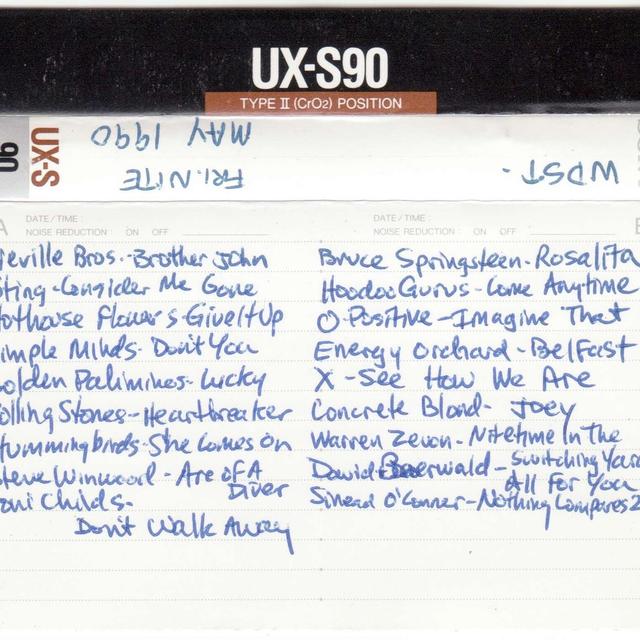 UX-S90
TYPE II (CrO2) POSITION
UX-S
90
MAY 1990
FRI. NITE
WDST.
DATE / TIME :
NOISE REDUCTION : ON OFF
DATE / TIME :
NOISE REDUCTION : ON OFF
eville Bros.-Brother John
ting-Consider Me Gone
othouse Flowers-Give It Up
imple Minds-Don't You
olden Palimines-Lucky
olling Stones-Heartbreaker
tummingbirds-She Comes On
teve Winwood-Arc of A
Diver
oni Childs-
Don't Walk Away
Bruce Springsteen-Rosalita
Hoodoo Gurus-Come Anytime
O-Positive-Imagine That
Energy Orchard-Belfast
X-See How We Are
Concrete Blond-Joey
Warren Zevon-Nitetime In The
Switching Yard
David Baerwald-All For You
Sinead O'Conner-Nothing Compares 2